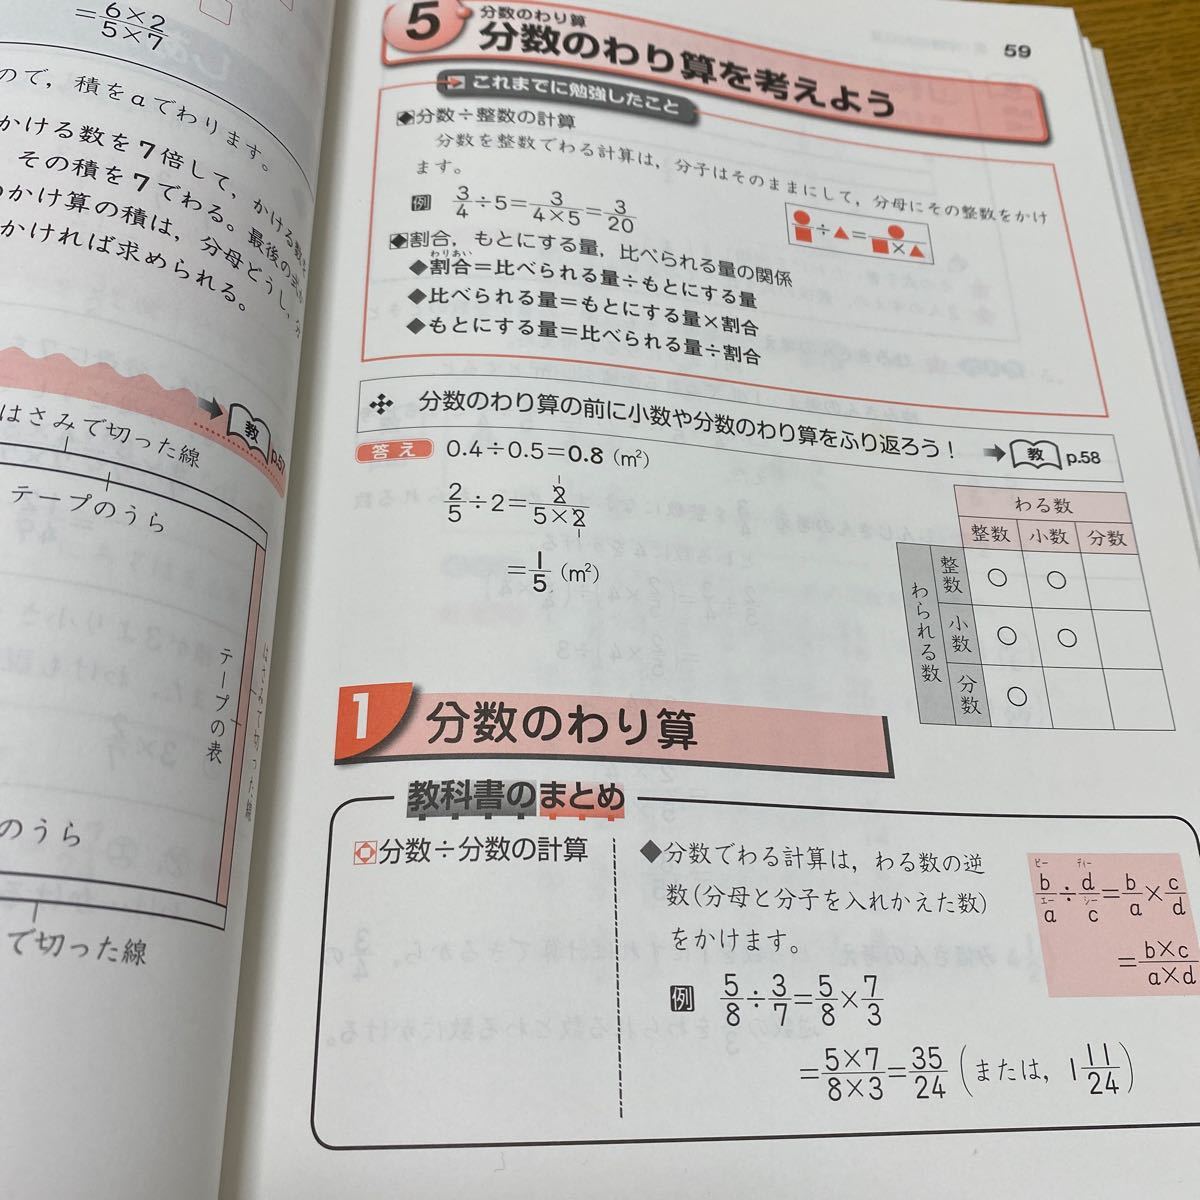 =6×2/5×7
ので，積をaでわります。
かける数を7倍して，かける数を
その積を7でわる。最後の式か
かけ算の積は，分母どうし，分
かければ求められる。
はさみで切った線
教 p.57
テープのうら
テープの表
はさみで切った線
のうら
で切った線
59
5
分数のわり算
分数のわり算を考えよう
これまでに勉強したこと
分数÷整数の計算
分数を整数でわる計算は，分子はそのままにして，分母にその整数をかけ
ます。
例 3/4÷5=3/4×5=3/20
●/■÷▲=●/■×▲
割合，もとにする量，比べられる量の関係
わりあい
◆割合＝比べられる量÷もとにする量
◆比べられる量＝もとにする量×割合
◆もとにする量＝比べられる量÷割合
分数のわり算の前に小数や分数のわり算をふり返ろう！ 教 p.58
答え 0.4÷0.5=0.8 (m²)
2/5÷2=2/5×2
1
1
=1/5 (m²)
わる数
整数 小数 分数
わられる数
整数 ○ ○
小数 ○ ○
分数 ○
1 分数のわり算
教科書のまとめ
分数÷分数の計算
◆分数でわる計算は，わる数の逆
数(分母と分子を入れかえた数)
をかけます。
例 5/8÷3/7=5/8×7/3
=5×7/8×3=35/24 (または，1 11/24)
ビー ディー
b/a÷d/c=b/a×c/d
エー シー
=b×c/a×d